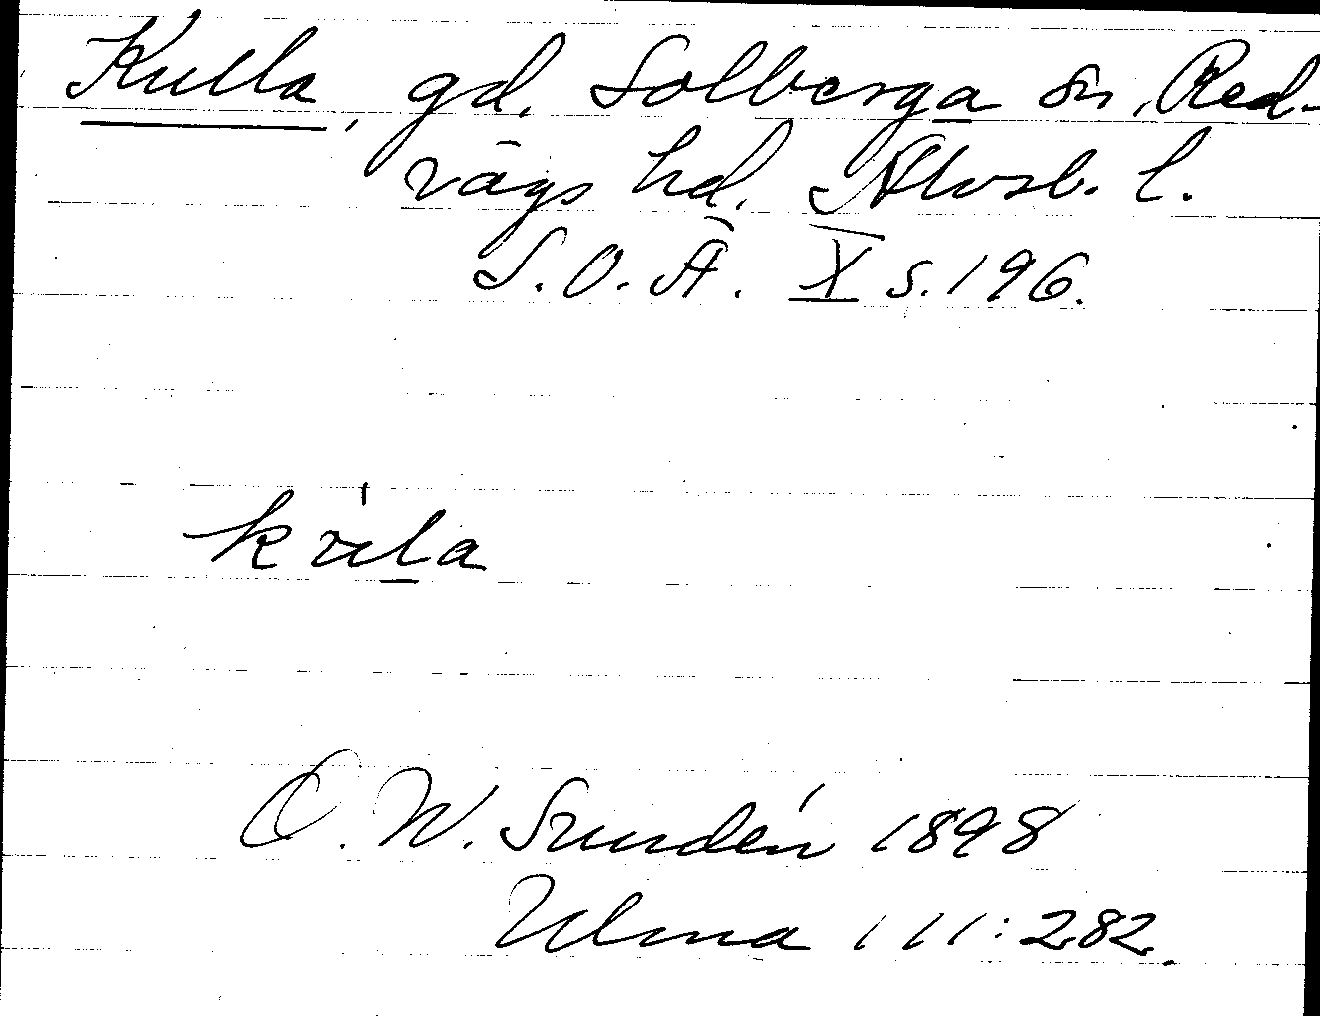 Kulla, gd. Solberga sn, Red-
vägs hd. Älvsb. l.
S.O.Ä. X s. 196.
kúla
O. W. Sundén 1898
Ulma 111:282.